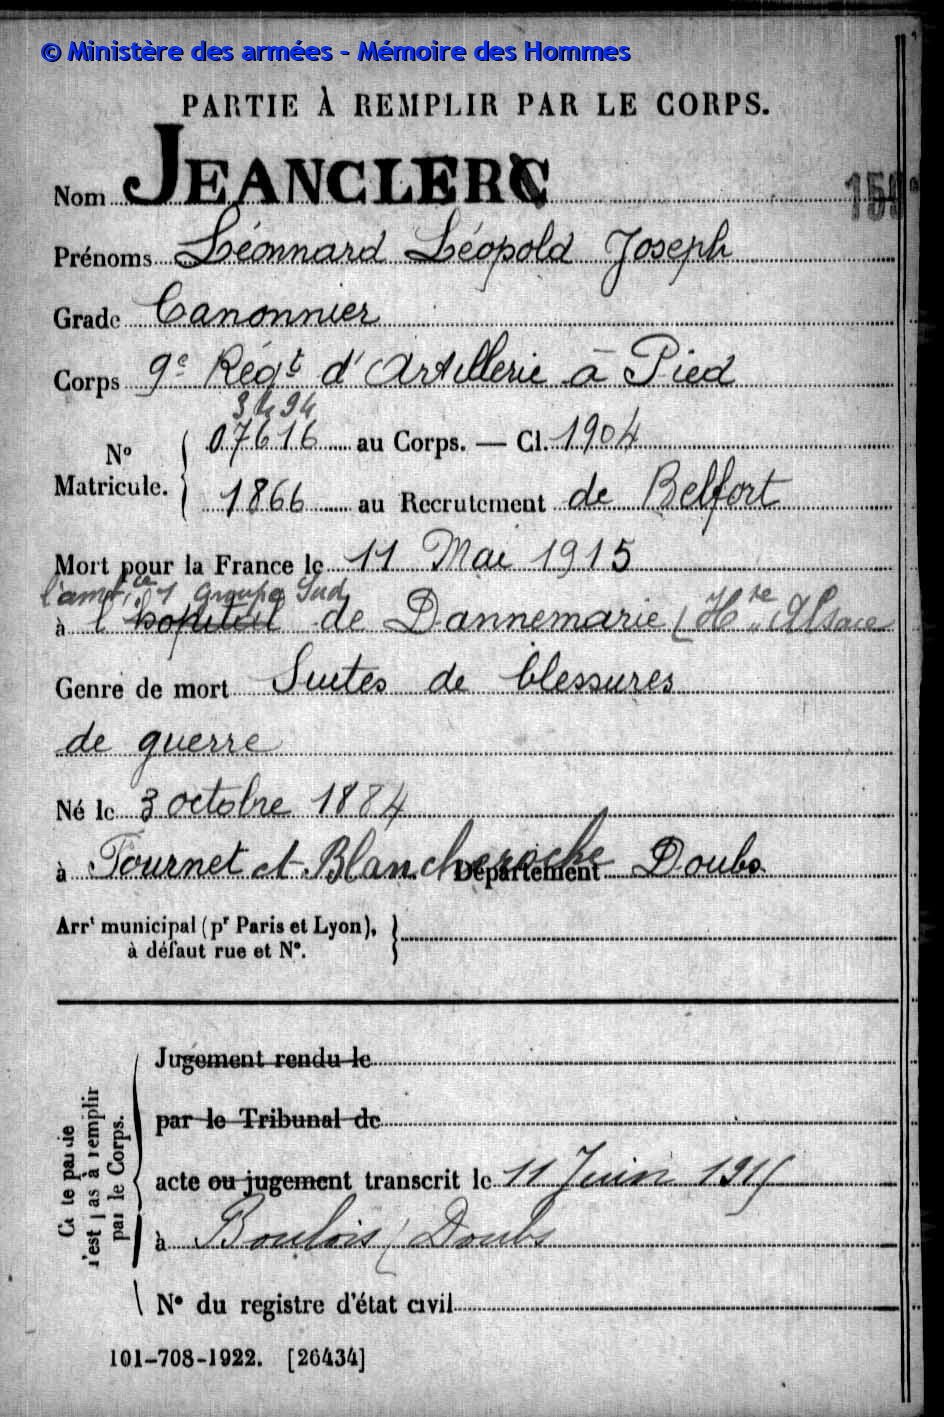 © Ministère des armées - Mémoire des Hommes
PARTIE À REMPLIR PAR LE CORPS.
Nom JEANCLERC
159
Prénoms Léonnard Léopold Joseph
Grade Canonnier
Corps 9e Régt d'Artillerie à Pied
3494
07616 au Corps. — Cl. 1904
N° Matricule.
1866 au Recrutement de Belfort
Mort pour la France le 11 Mai 1915
l'amb.ce 1 Groupe Sud
à l'hopital de Dannemarie (Hte Alsace
Genre de mort Suites de blessures
de guerre
Né le 3 octobre 1884
à Fournet et Blancheroche Département Doubs
Arrt municipal (pr Paris et Lyon),
à défaut rue et N°.
Cette partie
n'est pas à remplir
par le Corps.
Jugement rendu le
par le Tribunal de
acte ou jugement transcrit le 11 Juin 1915
à Boulois (Doubs
N° du registre d'état civil
101-708-1922. [26434]